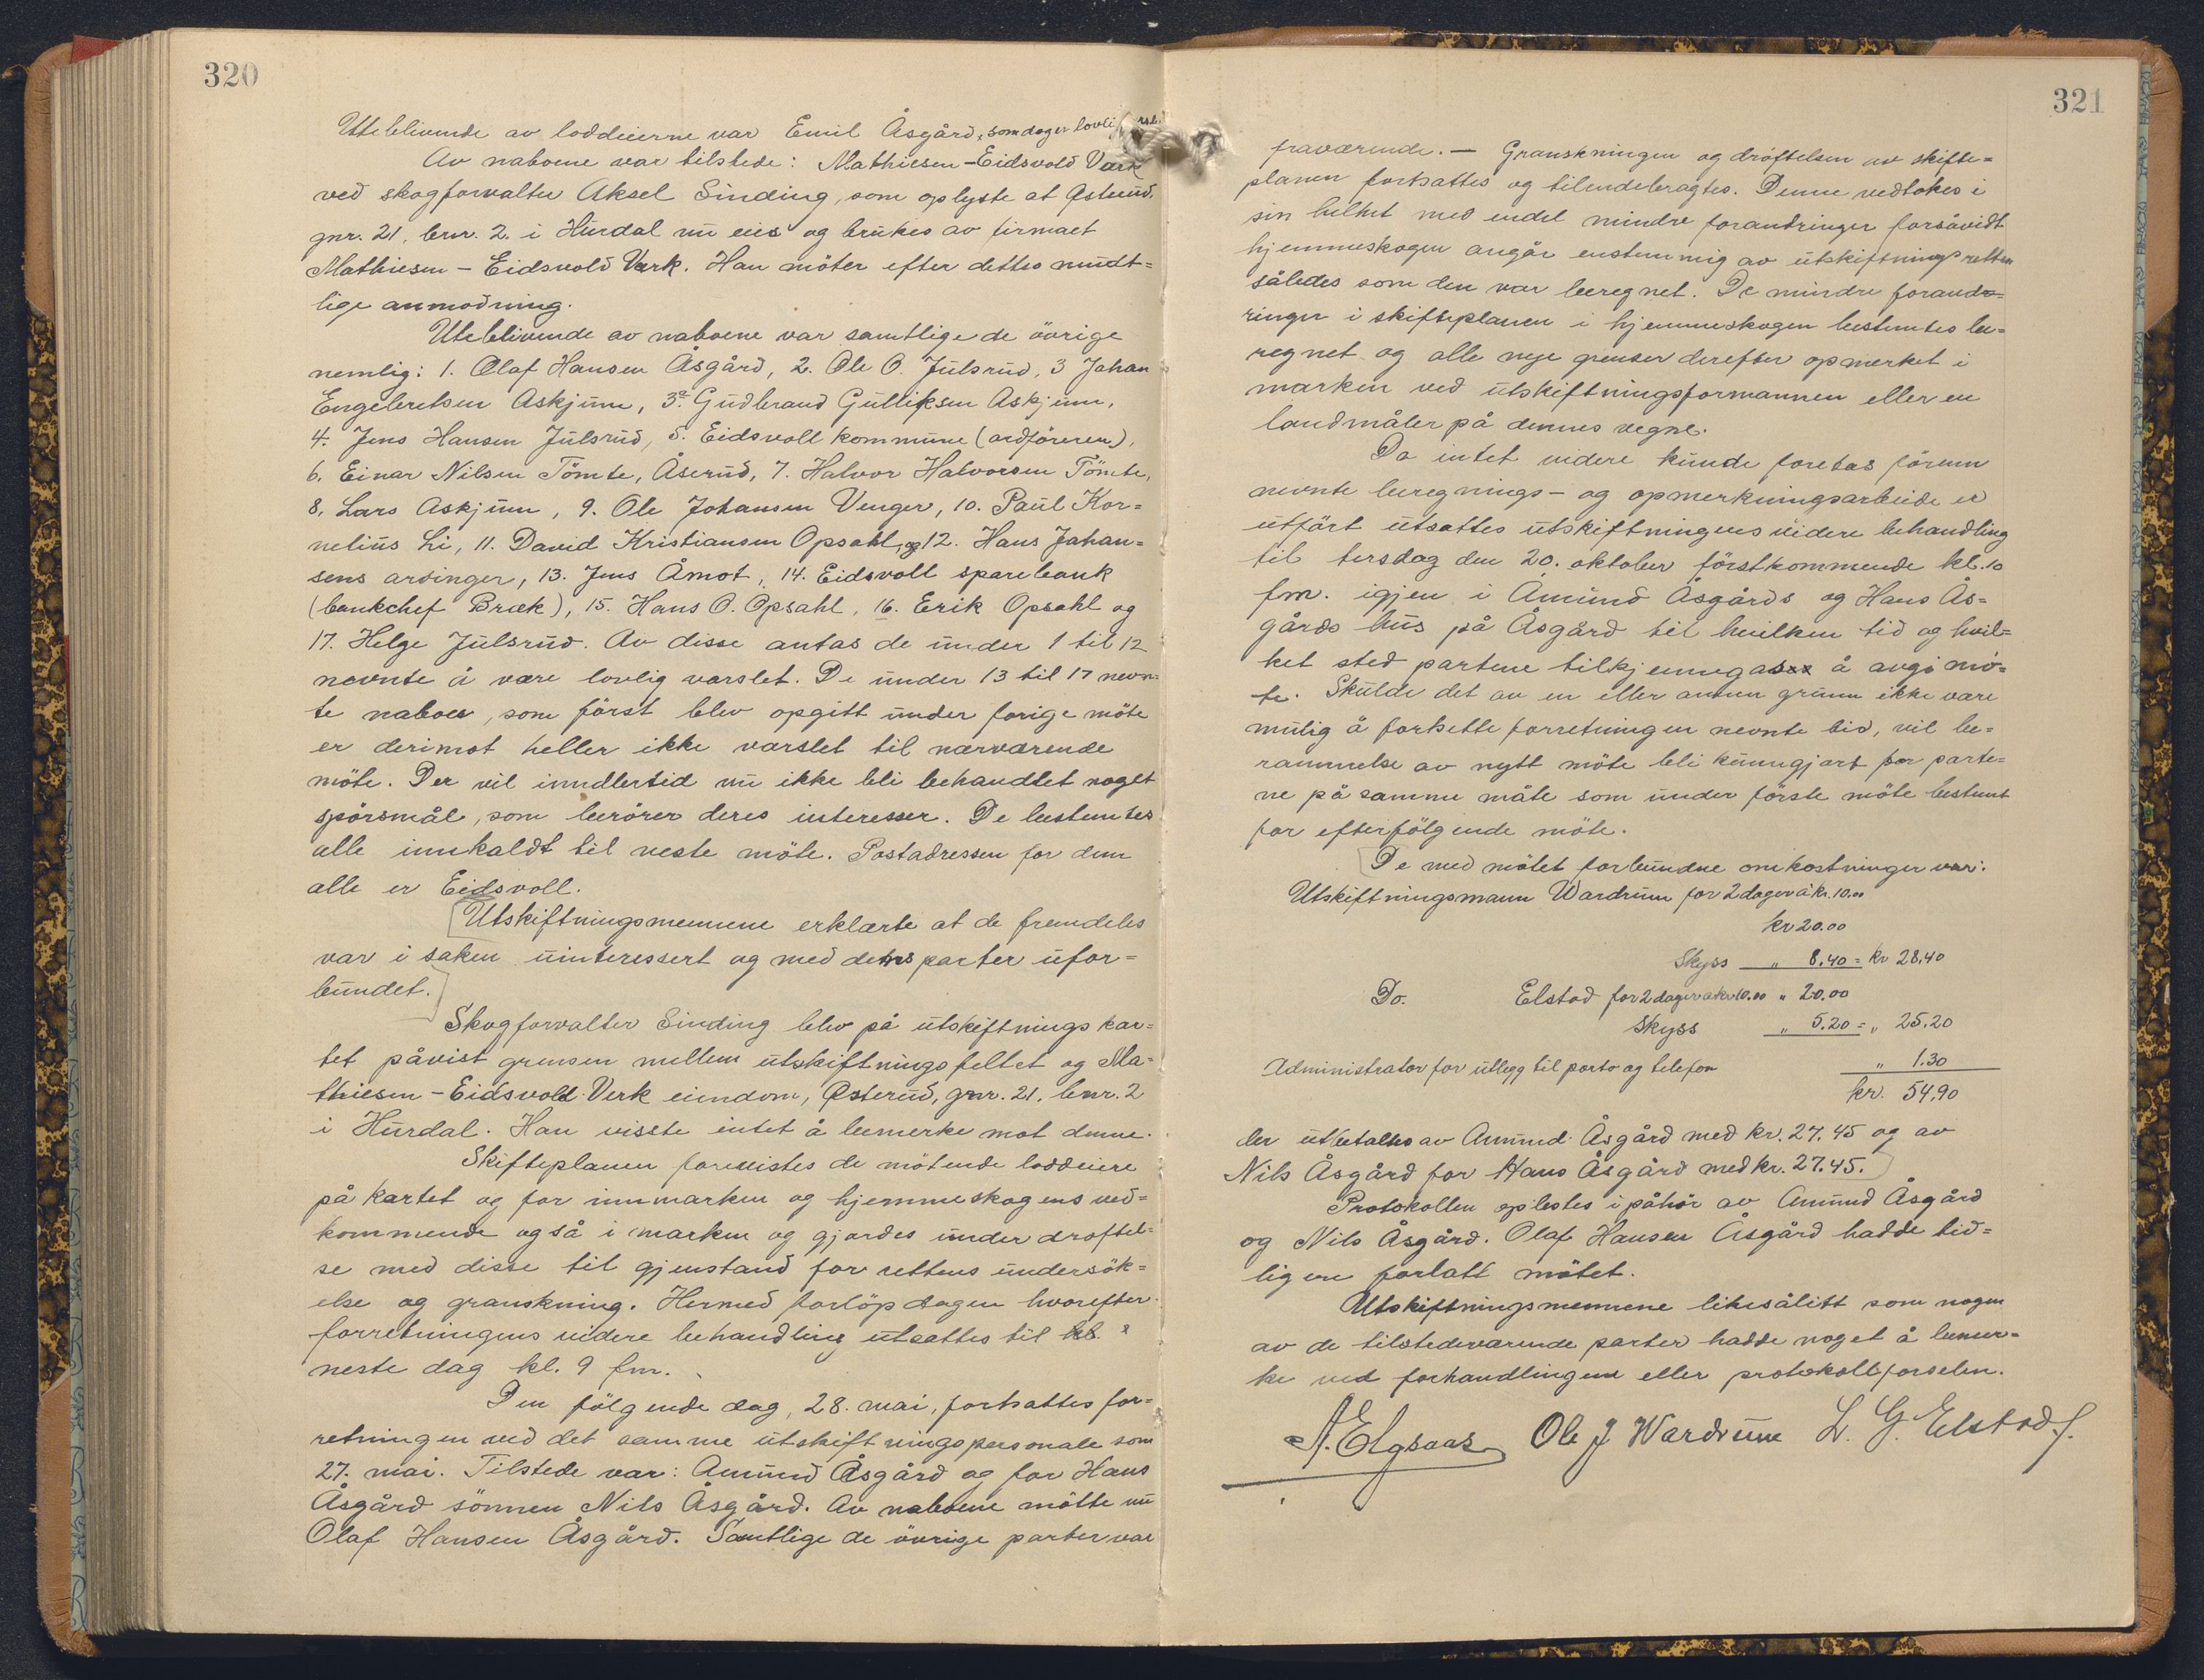 320
Uteblivende av loddeierne var Emil Åsgård, som dog er lovlig
Av naboene var tilstede: Mathiesen-Eidsvold Værk
ved skogforvalter Aksel Sinding, som oplyste at Østerud,
gnr. 21, brnr. 2. i Hurdal nu eies og brukes av firmaet
Mathiesen - Eidsvold Verk. Han möter efter dettes mundt=
lige anmodning.
Uteblivende av naboene var samtlige de övrige
nemlig: 1. Olaf Hansen Åsgård, 2. Ole O. Julsrud, 3 Johan
Engebretsen Askjum, 3a. Gudbrand Gulliksen Askjum,
4. Jens Hansen Julsrud, 5. Eidsvoll kommune (ordföreren),
6. Einar Nilsen Tömte, Åserud, 7. Halvor Halvorsen Tömte,
8. Lars Askjum, 9. Ole Johansen Venger, 10. Paul Kor=
nelius Li, 11. David Kristiansen Opsahl, og 12. Hans Johan=
sens arvinger, 13. Jens Åmot, 14. Eidsvoll sparebank
(bankchef Bræk), 15. Hans O. Opsahl, 16. Erik Opsahl og
17. Helge Julsrud. Av disse antas de under 1 til 12
nevnte å være lovlig varslet. De under 13 til 17 nevn=
te naboer, som först blev opgitt under forige möte
er derimot heller ikke varslet til nærværende
möte. Der vil imidlertid nu ikke bli behandlet noget
spörsmål, som berörer deres interesser. De bestemtes
alle innkaldt til neste möte. Postadressen for dem
alle er Eidsvoll.
Utskiftningsmennene erklærte at de fremdeles
var i saken uinteressert og med dens parter ufor=
bundet.
Skogforvalter Sinding blev på utskiftningskar=
tet påvist grensen mellem utskiftningsfeltet og Ma=
thiesen - Eidsvold Verk eiendom, Østerud, gnr. 21, brnr. 2
i Hurdal. Han visste intet å bemerke mot denne.
Skifteplanen forevistes de mötende loddeiere
på kartet og for innmarken og hjemmeskogens ved=
kommende også i marken og gjordes under dröftel=
se med disse til gjenstand for rettens undersök=
else og granskning. Hermed forlöp dagen hvorefter
forretningens videre behandling utsattes til
neste dag kl. 9 fm.
Den fölgende dag, 28. mai, fortsattes for=
retningen ved det samme utskiftningspersonale som
27. mai. Tilstede var: Amund Åsgård og for Hans
Åsgård sönnen Nils Åsgård. Av naboene mötte nu
Olaf Hansen Åsgård. Samtlige de övrige parter var
321
fraværende. — Granskningen og dröftelsen av skifte=
planen fortsattes og tilendebragtes. Denne vedtokes i
sin helhet med endel mindre forandringer forsåvidt
hjemmeskogen angår enstemmig av utskiftningsretten
således som den var beregnet. De mindre forand=
ringer i skifteplanen i hjemmeskogen bestemtes be=
regnet og alle nye grenser derefter opmerket i
marken ved utskiftningsformannen eller en
landmåler på dennes vegne.
Da intet videre kunde foretas förenn
nevnte beregnings- og opmerkningsarbeide er
utfört utsattes utskiftningens videre behandling
til tirsdag den 20. oktober förstkommende kl. 10
fm. igjen i Amund Åsgårds og Hans Ås=
gårds hus på Åsgård til hvilken tid og hvil=
ket sted partene tilkjennegas å avgi mö=
te. Skulde det av en eller annen grunn ikke være
mulig å fortsette forretningen nevnte tid, vil be=
rammelse av nytt möte bli kunngjort for parte=
ne på samme måte som under förste möte bestemt
for efterfölgende möte.
De med mötet forbundne omkostninger var:
Utskiftningsmann Wardrum for 2 dager à kr. 10.00
kr 20.00
Skyss " 8.40 = kr 28.40
Do. Elstad for 2 dager a kr 10.00 " 20.00
Skyss " 5.20 = " 25.20
Administrator for utlegg til porto og telefon " 1.30
kr. 54.90
der utbetaltes av Amund Åsgård med kr. 27.45 og av
Nils Åsgård for Hans Åsgård med kr. 27.45.
Protokollen oplestes i påhör av Amund Åsgård
og Nils Åsgård. Olaf Hansen Åsgård hadde tid=
ligere forlatt mötet.
Utskiftningsmennene likesålitt som nogen
av de tilstedeværende parter hadde noget å bemer=
ke ved forhandlingene eller protokollförselen.
A. Elgsaas Ole J Wardrum L. G. Elstad.